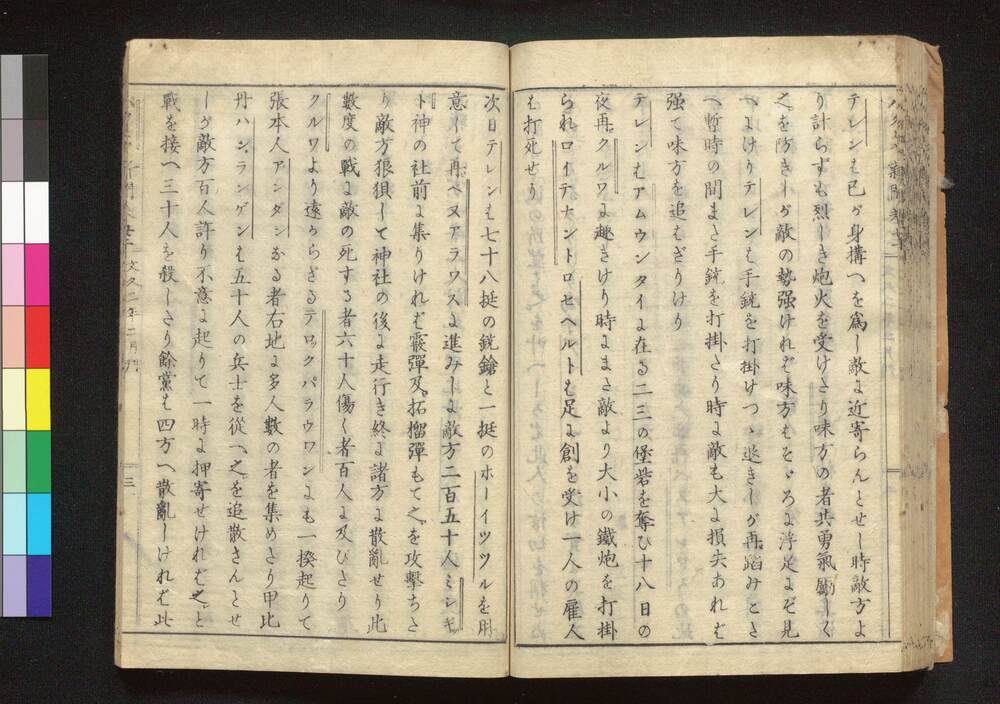 テレンは已が身構へを爲し敵に近寄らんとせし時敵方よ
り計らずも烈しき炮火を受けたり味方の者共勇氣勵しく
之を防きしが敵の勢强けれバ味方はそゞろに浮足にぞ見
へよけりテレンは手銃を打掛けつゝ退きしが再蹈みとゞ
へ暫時の間また手銃を打掛たり時に敵も大に損失あれバ
强て味方を追はざりけり
テレンはアムウンタイに在る二三の堡砦を奪ひ十八日の
夜再クルワに趣きけり時にまた敵より大小の鐵炮を打掛
られロイテナントロセヘルトは足に創を受け一人の雇人
は打死せり
次日テレンは七十八挺の銃鎗と一挺のホーイツツルを用
意して再ベヌアラワスに進みしに敵方二百五十人ミンギ
ト神の社前に集りけれバ霰彈及拓榴彈もて之を攻擊ちた
り敵方狼狽して神社の後に走行き終に諸方に散亂せり此
數度の戰に敵の死する者六十人傷く者百人に及びたり
クルワより遠からざるテロックパラウワンにも一揆起りて
張本人アンダシなる者右地に多人數の者を集めたり甲比
丹ハンランゲンは五十人の兵士を從へ之を追散さんとせ
しが敵方百人許り不意に起りて一時に押寄せけれバ之と
戰を接へ三十人を殺したり餘黨は四方へ散亂しけれバ此
文久二年二月
三